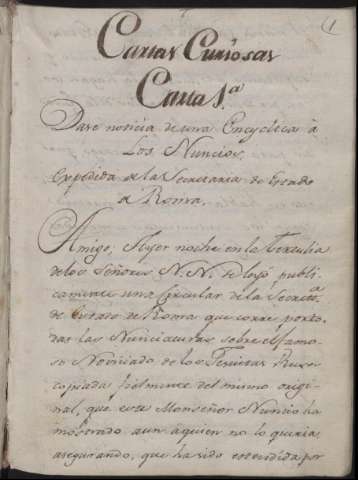 1
Cartas Curiosas
Carta 1.a
Dase noticia de una Encyclica à
Los Nuncios,
expedida de la Secretaria de Estado
de Roma.
Amigo, Ayer noche en la tertulia
de los Señores N. N. se leyó publi-
camente una Circular de la Secret.a
de Estado de Roma que corre por to-
das las Nunciaturas sobre el famo-
so Noviciado de los Jesuitas Rusos
copiada fielmente del mismo origi-
nal, que este Monseñor Nuncio ha
mostrado aun aquien no lo queria
asegurando, que ha sido estendida por